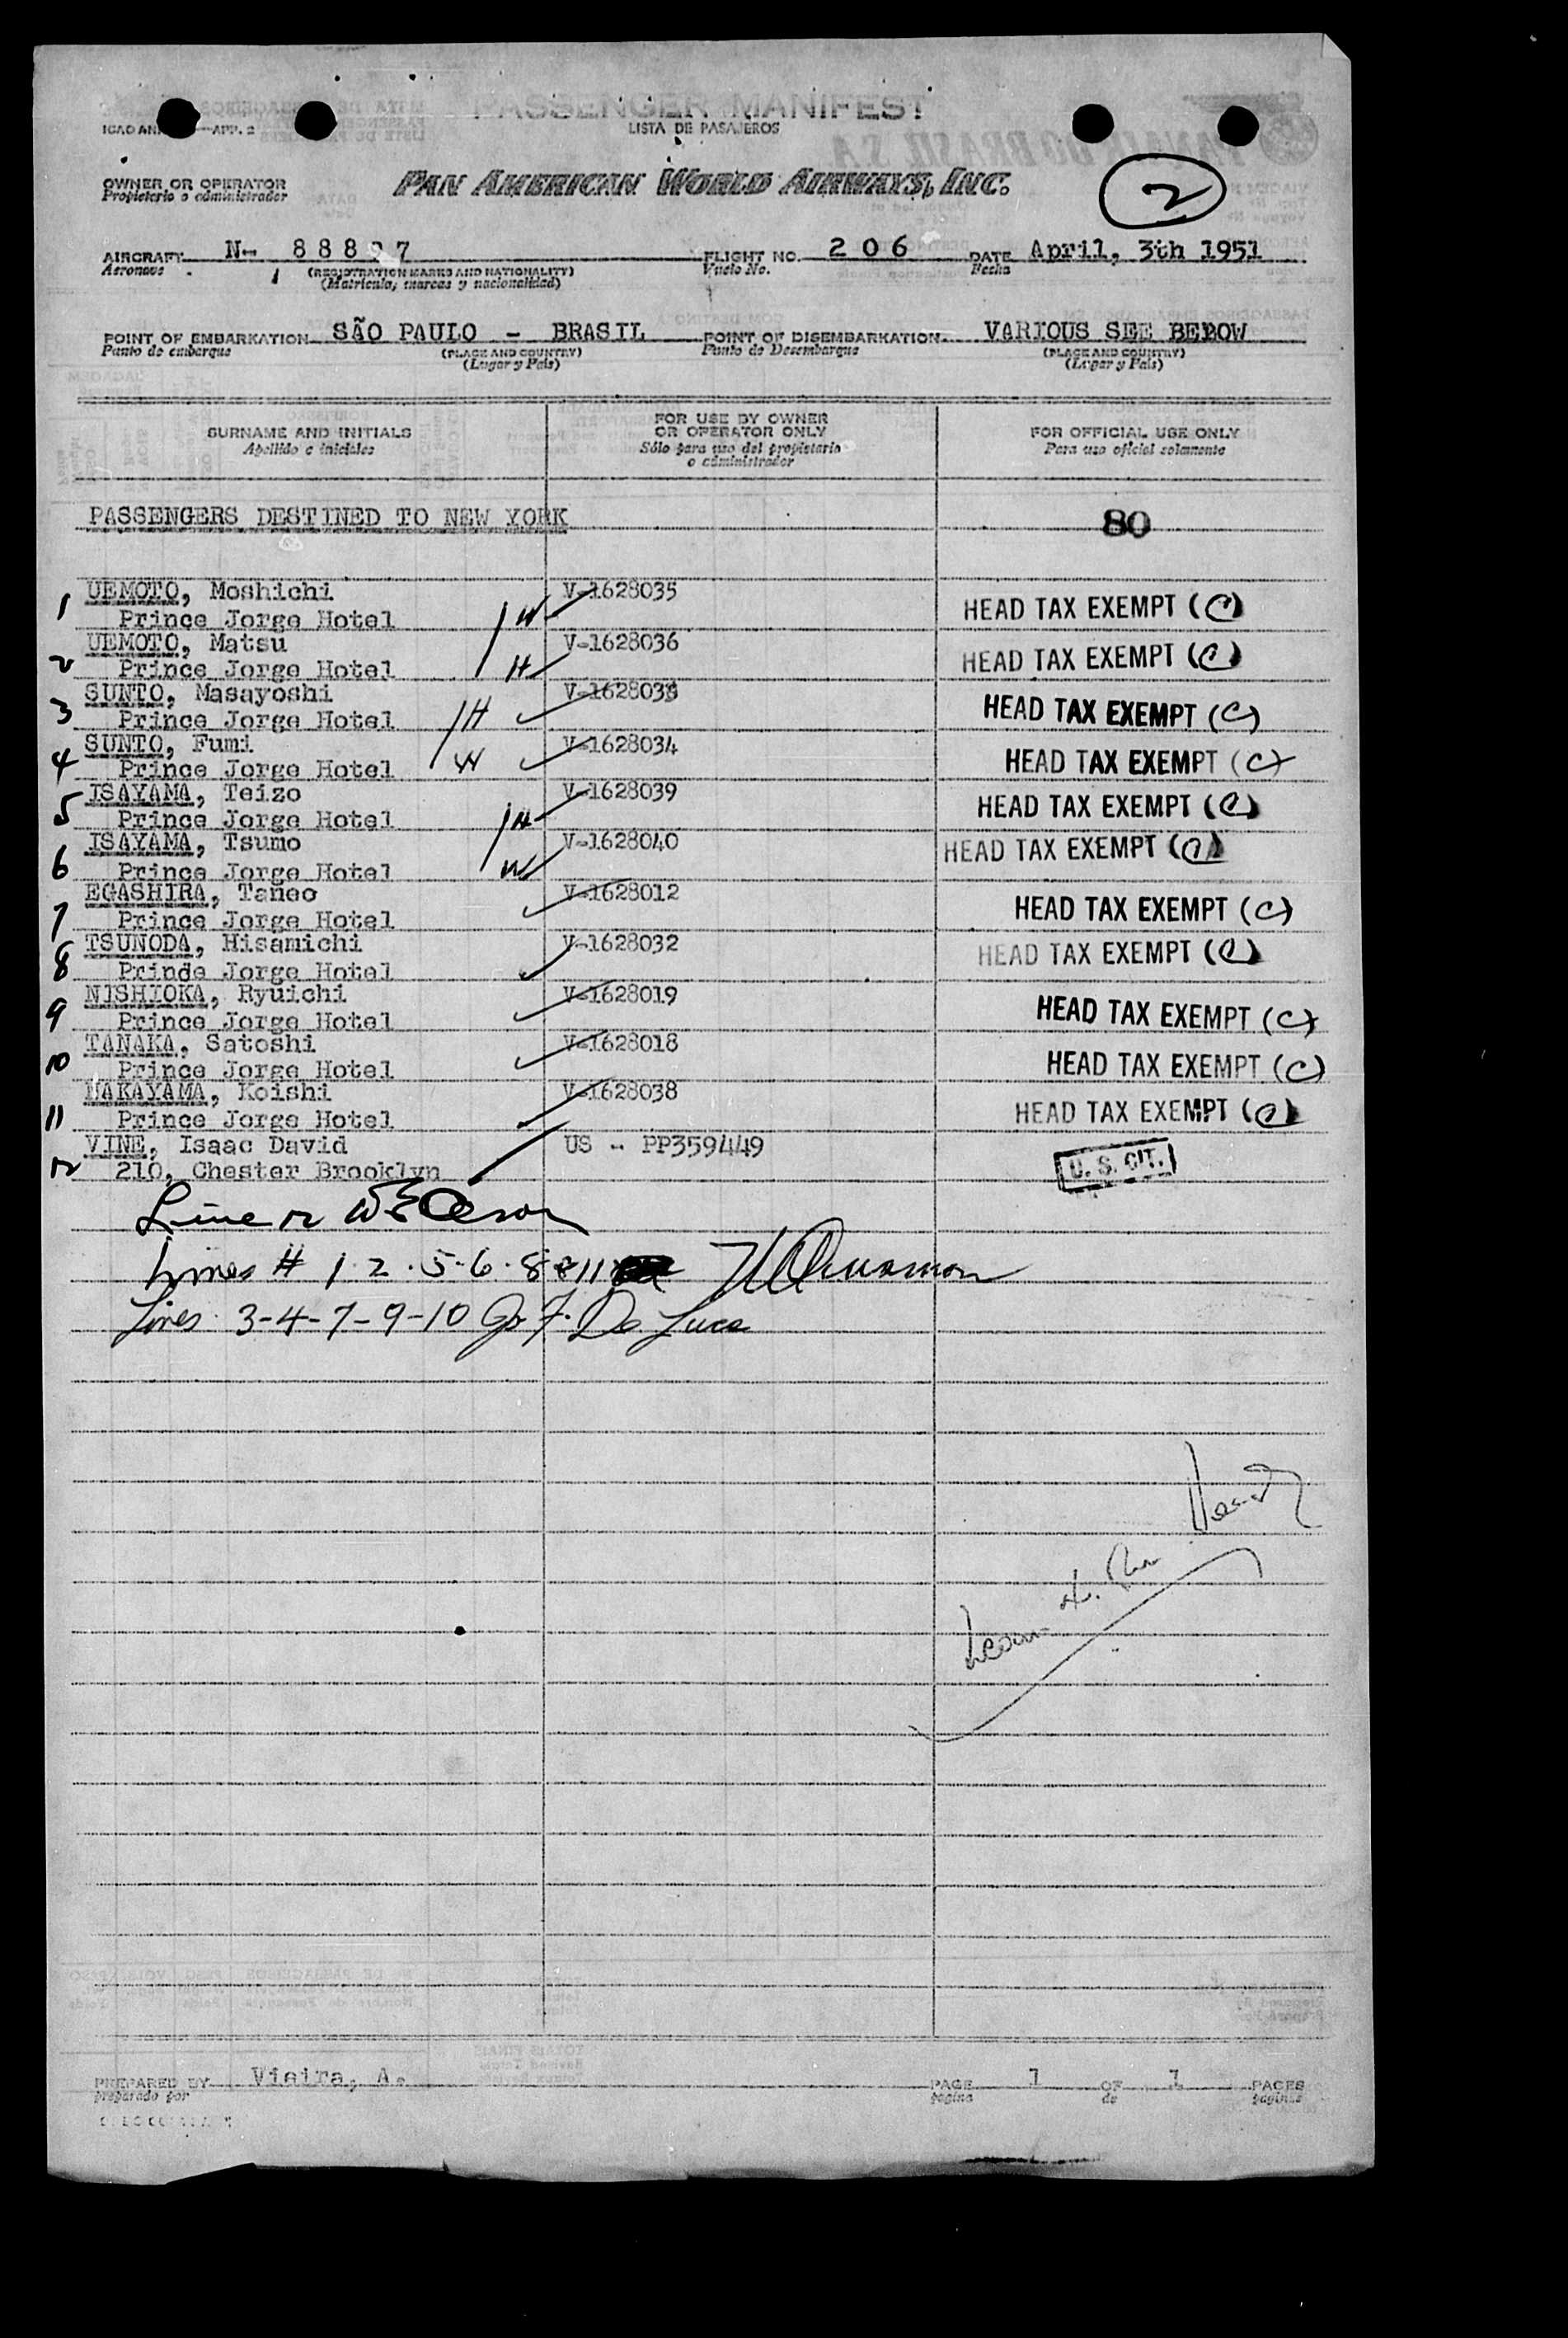 PASSENGER MANIFEST
LISTA DE PASAJEROS
ICAO ANN APP. 2
OWNER OR OPERATOR
Propietario o administrador
PAN AMERICAN WORLD AIRWAYS, INC.
2
AIRCRAFT N- 888 7 FLIGHT NO. 206 DATE April, 3th 1951
Aeronave (REGISTRATION MARKS AND NATIONALITY) Vuelo No. Fecha
(Matrícula, marcas y nacionalidad)
POINT OF EMBARKATION SÃO PAULO - BRASIL POINT OF DISEMBARKATION VARIOUS SEE BEBOW
Punto de embarque (PLACE AND COUNTRY) Punto de Desembarque (PLACE AND COUNTRY)
(Lugar y País) (Lugar y País)
SURNAME AND INITIALS
Apellido e iniciales
FOR USE BY OWNER
OR OPERATOR ONLY
Sólo para uso del propietario
o administrador
FOR OFFICIAL USE ONLY
Para uso oficial solamente
PASSENGERS DESTINED TO NEW YORK 80
1 UEMOTO, Moshichi V-1628035
Prince Jorge Hotel H HEAD TAX EXEMPT (C)
UEMOTO, Matsu V-1628036
2 Prince Jorge Hotel H HEAD TAX EXEMPT (C)
SUNTO, Masayoshi V-1628033
3 Prince Jorge Hotel H HEAD TAX EXEMPT (C)
SUNTO, Fumi V-1628034
4 Prince Jorge Hotel W HEAD TAX EXEMPT (C)
ISAYAMA, Teizo V-1628039
5 Prince Jorge Hotel H HEAD TAX EXEMPT (C)
ISAYAMA, Tsumo V-1628040
6 Prince Jorge Hotel W HEAD TAX EXEMPT (C)
EGASHIRA, Taneo V-1628012
7 Prince Jorge Hotel HEAD TAX EXEMPT (C)
TSUNODA, Hisamichi V-1628032
8 Prinde Jorge Hotel HEAD TAX EXEMPT (C)
NISHIOKA, Ryuichi V-1628019
9 Prince Jorge Hotel HEAD TAX EXEMPT (C)
TANAKA, Satoshi V-1628018
10 Prince Jorge Hotel HEAD TAX EXEMPT (C)
NAKAYAMA, Koishi V-1628038
11 Prince Jorge Hotel HEAD TAX EXEMPT (C)
VINE, Isaac David US - PP359449
12 210, Chester Brooklyn U. S. CIT.
Line 12
Lines # 1-2-5-6-8-11
Lines 3-4-7-9-10 F. De Luca
PREPARED BY Vieira, A. PAGE 1 OF 1 PAGES
preparado por página de páginas